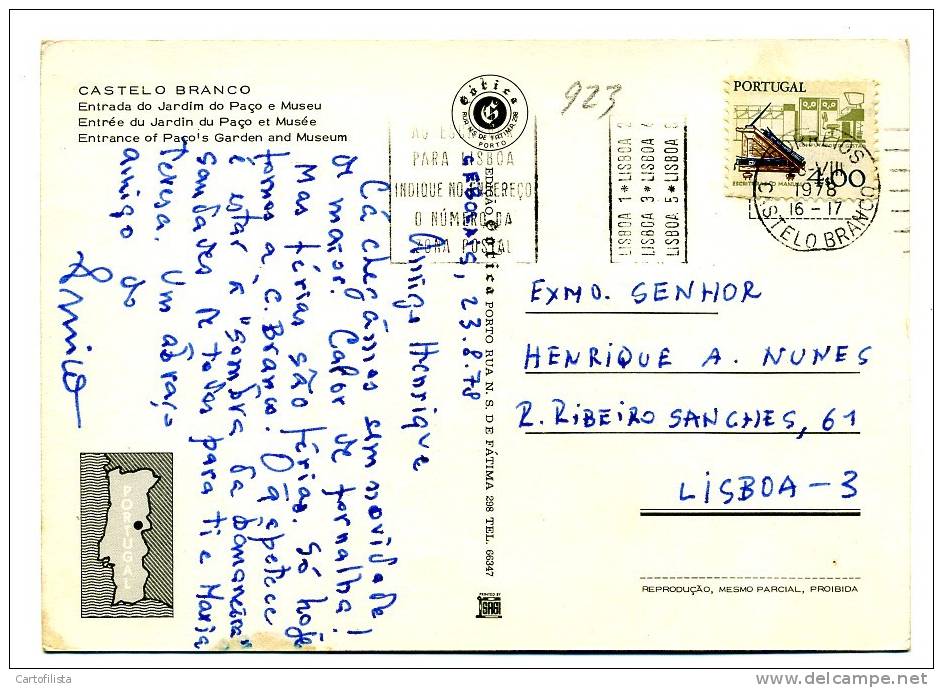 CASTELO BRANCO
Entrada do Jardim do Paço e Museu
Entrée du Jardin du Paço et Musée
Entrance of Paço's Garden and Museum
Gótica
RUA N.S. DE FÁTIMA 298
PORTO
923
PORTUGAL
4,00
PARA LISBOA
INDIQUE NO ENDEREÇO
O NÚMERO DA
ZONA POSTAL
LISBOA 1 * LISBOA
LISBOA 3 * LISBOA
LISBOA 5 * LISBOA
CORREIOS
VIII
1978
16 - 17
CASTELO BRANCO
23.8.78
Amigo Henrique
Cá chegámos sem novidade!
O maior. Calor de fornalha!
Mas férias são férias. Só hoje
fomos a C. Branco. O q̃ apetece
é estar à "sombra da bananeira"
Saudades de todos para ti e Maria
Teresa. Um abraço
amigo do
EDIÇÃO Gótica PORTO RUA N. S. DE FÁTIMA 298 TEL. 66347
EXMO. SENHOR
HENRIQUE A. NUNES
R. RIBEIRO SANCHES, 61
LISBOA - 3
PORTUGAL
PRINTED BY
REPRODUÇÃO, MESMO PARCIAL, PROIBIDA
Cartofilista
delcampe.net